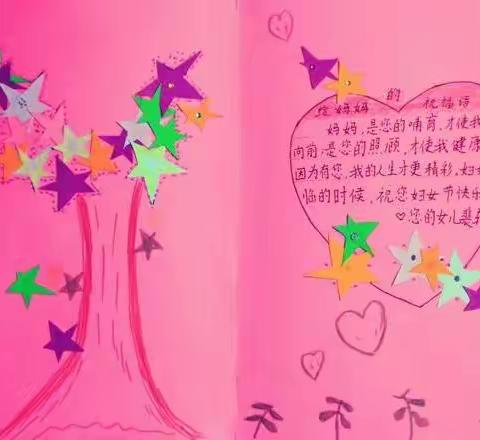 给妈妈的祝福语
妈妈,是您的哺育,才使我
向前;是您的照顾,才使我健康
因为有您,我的人生才更精彩,妇女
临的时候,祝您妇女节快乐
♡您的女儿裴